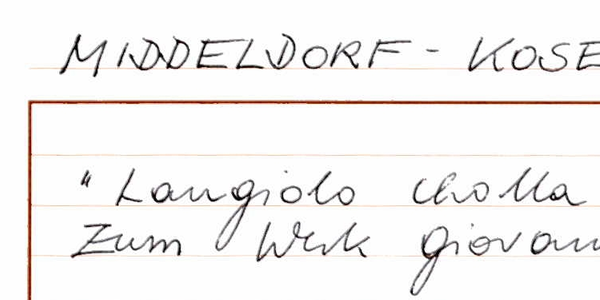 MIDDELDORF - KOSE
"Langiolo cholla
Zum Werk giovan